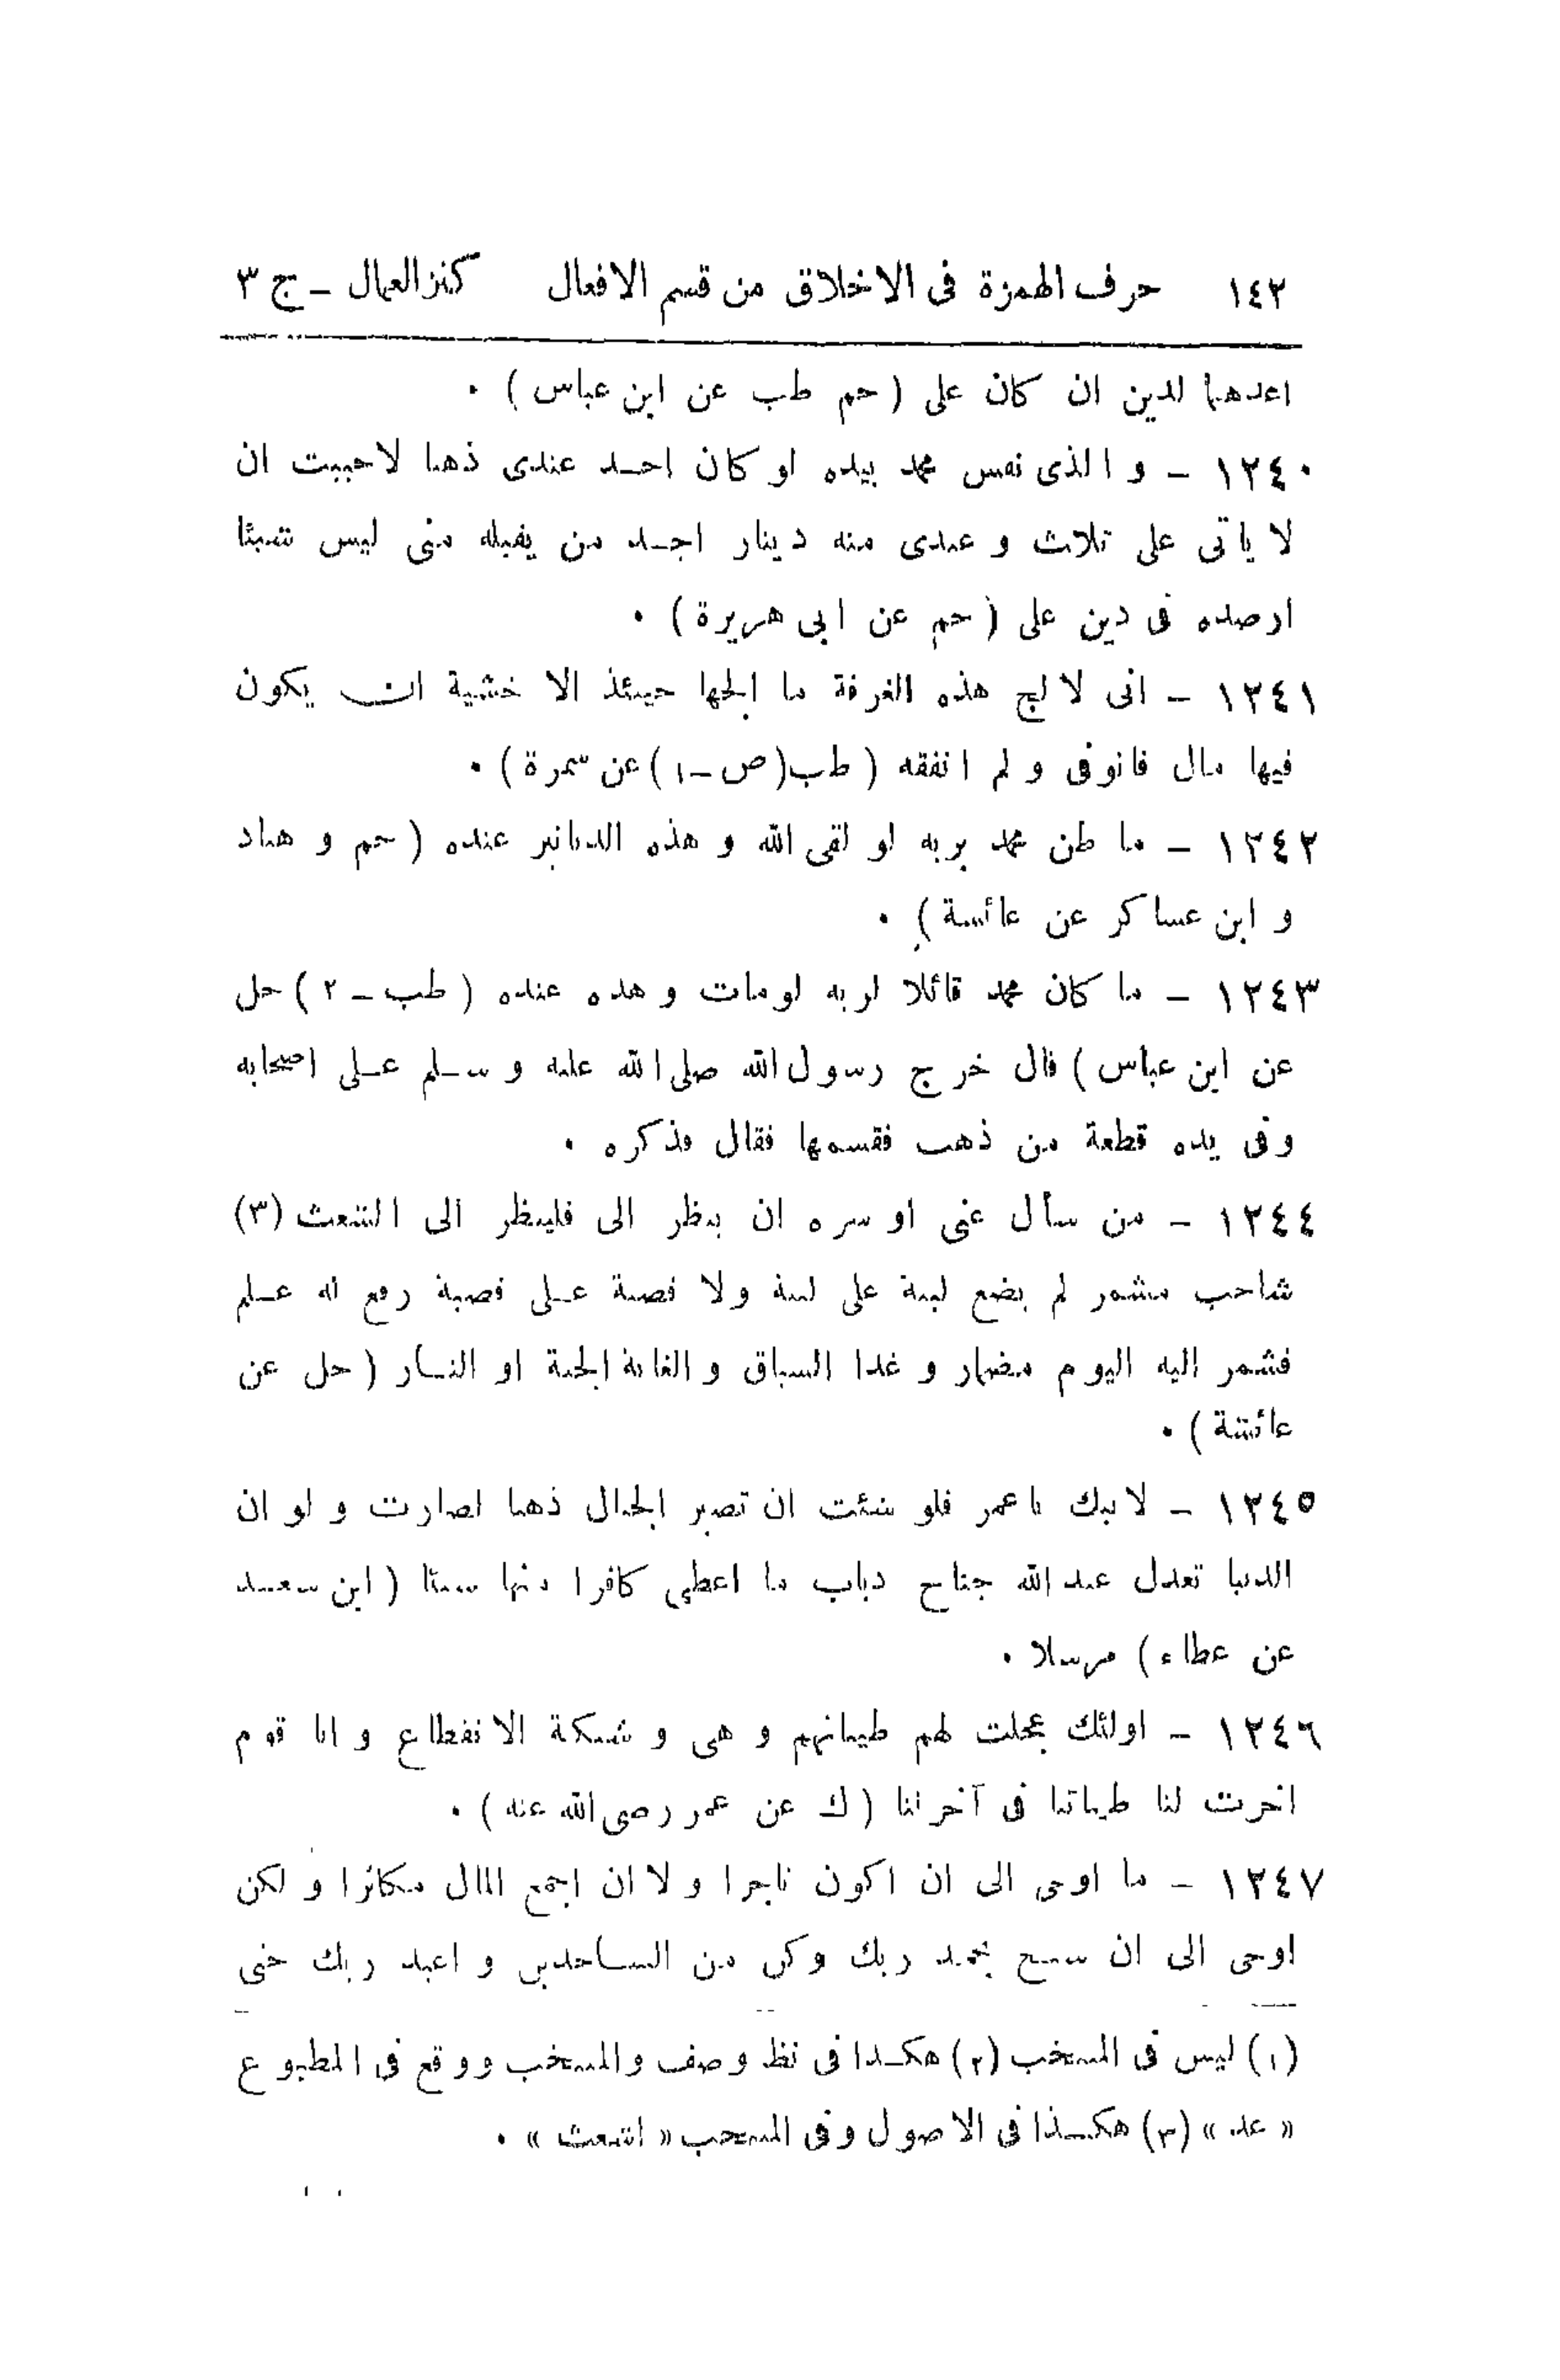 ١٤٢ حرف الهمزة فى الاخلاق من قسم الافعال كنز العمال ــ ج ٣
اعدهما لدين ان كان على ( حم طب عن ابن عباس ) .
١٢٤٠ ــ و الذى نفس محمد بيده لو كان احد عندى ذهبا لاحببت ان
لا ياتى على ثلاث و عندى منه دينار اجد من يقبله منى ليس شيئا
ارصده فى دين على ( حم عن ابى هريرة ) .
١٢٤١ ــ انى لالج هذه الغرفة ما الجها حينئذ الا خشية ان يكون
فيها مال فاتوفى و لم انفقه ( طب (ص ــ ١) عن سمرة ) .
١٢٤٢ ــ ما ظن محمد بربه لو لقى الله و هذه الدنانير عنده ( حم و هناد
و ابن عساكر عن عائشة ) .
١٢٤٣ ــ ما كان محمد قائلا لربه لو مات و هذه عنده ( طب ــ ٢ ) حل
عن ابن عباس ) قال خرج رسول الله صلى الله عليه و سلم على اصحابه
وفى يده قطعة من ذهب فقسمها فقال فذكره .
١٢٤٤ ــ من سأل عنى او سره ان ينظر الى فلينظر الى الشعث (٣)
شاحب مشمر لم يضع لبنة على لبنة ولا قصبة على قصبة رفع له علم
فشمر اليه اليوم مضمار و غدا السباق و الغاية الجنة او النار ( حل عن
عائشة ) .
١٢٤٥ ــ لا يبك يا عمر فلو شئت ان تصير الجبال ذهبا لصارت و لو ان
الدنيا تعدل عند الله جناح ذباب ما اعطى كافرا منها شيئا ( ابن سعد
عن عطاء ) مرسلا .
١٢٤٦ ــ اولئك عجلت لهم طيباتهم و هى و شيكة الانقطاع و انا قوم
اخرت لنا طيباتنا فى آخرتنا ( ك عن عمر رضى الله عنه ) .
١٢٤٧ ــ ما اوحى الى ان اكون تاجرا و لا ان اجمع المال مكاثرا و لكن
اوحى الى ان سبح بحمد ربك وكن من الساجدين و اعبد ربك حتى
(١) ليس فى المنتخب (٢) هكذا فى نظ وصف والمنتخب ووقع فى المطبوع
« عد » (٣) هكذا فى الاصول وفى المنتخب « اشعث » .